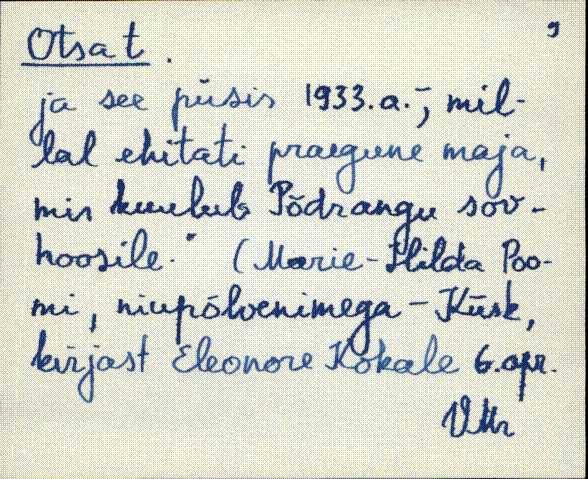 9
Otsa t.
ja see püsis 1933.a.-ni, mil-
lal ehitati praegune maja,
mis kuulub Põdrangu sov-
hoosile." (Marie-Hilda Poo-
mi, niupõlvenimega - Küsk,
kirjast Eleonore Kokale 6.apr.
VMr